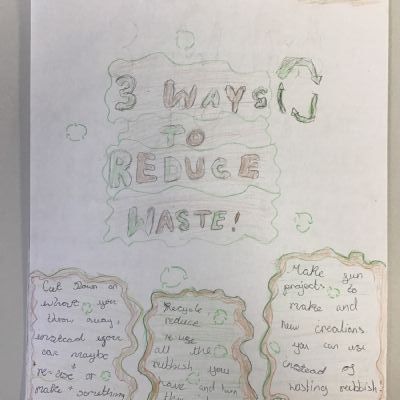 3 WAYS
TO
REDUCE
WASTE!
Cut down on
what you
throw away,
instead you
can maybe
re-use or
make something
Recycle,
reduce
re-use
all the
rubbish you
have and turn
Make fun
projects to
make and
new creations
you can use
instead of
wasting rubbish!